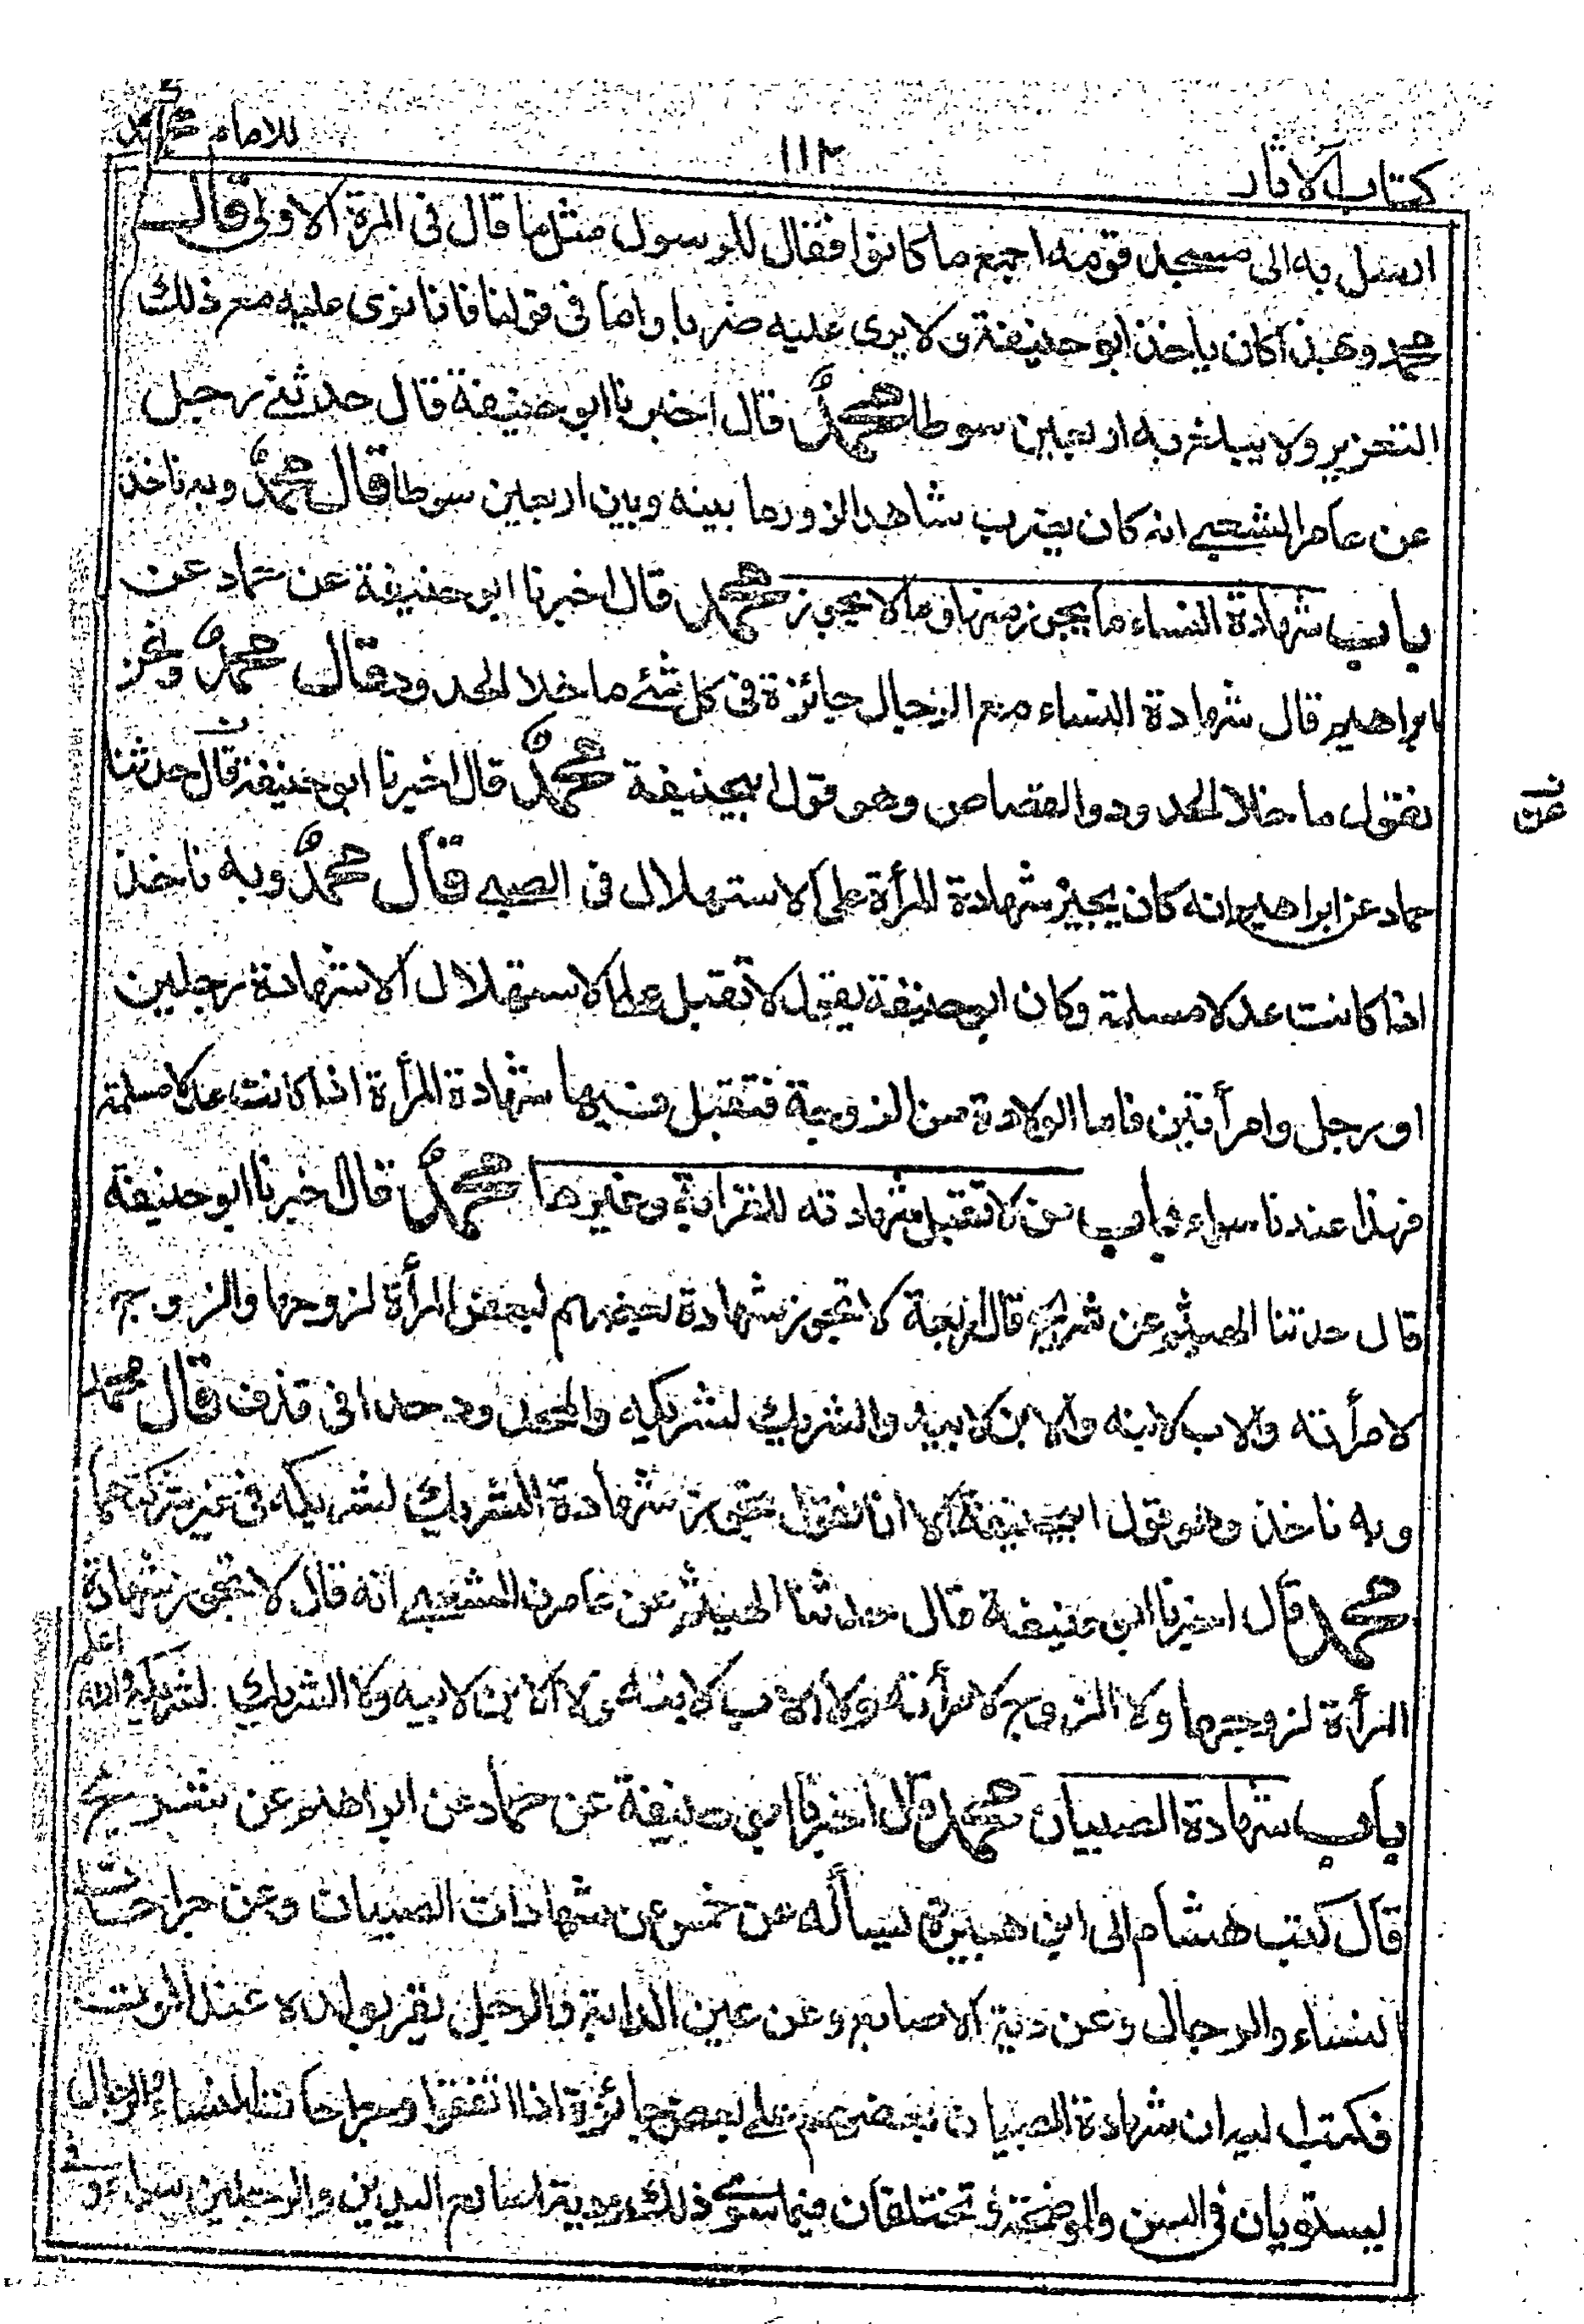 كتاب الاثار
١١٢
للامام محمد
ارسل به الى مسجد قومه اجمع ما كانوا فقال للرسول مثل ما قال فى المرة الاولى قال
محمد وبهذا كان ياخذ ابو حنيفة ولا يرى عليه ضربا واما فى قولنا فانا نرى عليه مع ذلك
التعزير ولا يبلغ به اربعين سوطا محمد قال اخبرنا ابو حنيفة قال حدثنى رجل
عن عامر الشعبى انه كان يضرب شاهد الزور ما بينه وبين اربعين سوطا قال محمد وبه ناخذ
باب شهادة النساء ما يجوز منها وما لا يجوز محمد قال اخبرنا ابو حنيفة عن حماد عن
ابراهيم قال شهادة النساء مع الرجال جائزة فى كل شئ ما خلا الحدود قال محمد ونحن
نقول ما خلا الحدود والقصاص وهو قول ابى حنيفة محمد قال اخبرنا ابو حنيفة قال حدثنا
حماد عن ابراهيم انه كان يجيز شهادة المرأة على الاستهلال فى الصبى قال محمد وبه ناخذ
اذا كانت عدلا مسلمة وكان ابو حنيفة يقول لا تقبل على الاستهلال الا شهادة رجلين
او رجل وامرأتين فاما الولادة من الزوجة فتقبل فيها شهادة المرأة اذا كانت عدلا مسلمة
فهذا عندنا سواء باب من لا تقبل شهادته للقرابة وغيرها محمد قال اخبرنا ابو حنيفة
قال حدثنا الهيثم عن شريح قال اربعة لا تجوز شهادة بعضهم لبعض المرأة لزوجها والزوج
لامرأته والاب لابنه والابن لابيه والشريك لشريكه والمحدود حدا فى قذف قال محمد
وبه ناخذ وهو قول ابى حنيفة الا انا نقول تجوز شهادة الشريك لشريكه فى غير شركتهما
محمد قال اخبرنا ابو حنيفة قال حدثنا الهيثم عن عامر الشعبى انه قال لا تجوز شهادة
المرأة لزوجها ولا الزوج لامرأته ولا الاب لابنه ولا الابن لابيه ولا الشريك لشريكه والله اعلم
باب شهادة الصبيان محمد قال اخبرنا ابو حنيفة عن حماد عن ابراهيم عن شريح
قال كتب هشام الى ابن هبيرة يسأله عن خمس عن شهادات الصبيان وعن جراحات
النساء والرجال وعن دية الاصابع وعن عين الدابة والرجل يقر بولده عند الموت
فكتب اليه ان شهادة الصبيان بعضهم على بعض جائزة اذا اتفقوا وجراحات النساء والرجال
يستويان فى السن والموضحة وتختلفان فيما سوى ذلك ودية اصابع اليدين والرجلين سواء وفى
عن